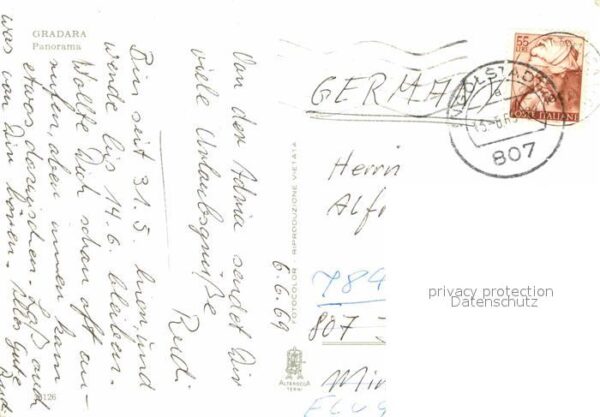 GRADARA
Panorama
Von der Adria sendet Dir
viele Urlaubsgrüße
Rudi
6.6.69
Bin seit 31.5. hier, und
werde bis 14.6. bleiben.
Wollte Dich schon oft an-
rufen, aber immer kam
etwas dazwischen. Laß auch
was von Dir hören. Alles Gute
Rudi
FOTOCOLOR - RIPRODUZIONE VIETATA
ALTEROCCA
TERNI
GERMA
55
LIRE
POSTE ITALIANE
INGOLSTADT
a
807
Herrn
Alf
784
807
privacy protection
Datenschutz